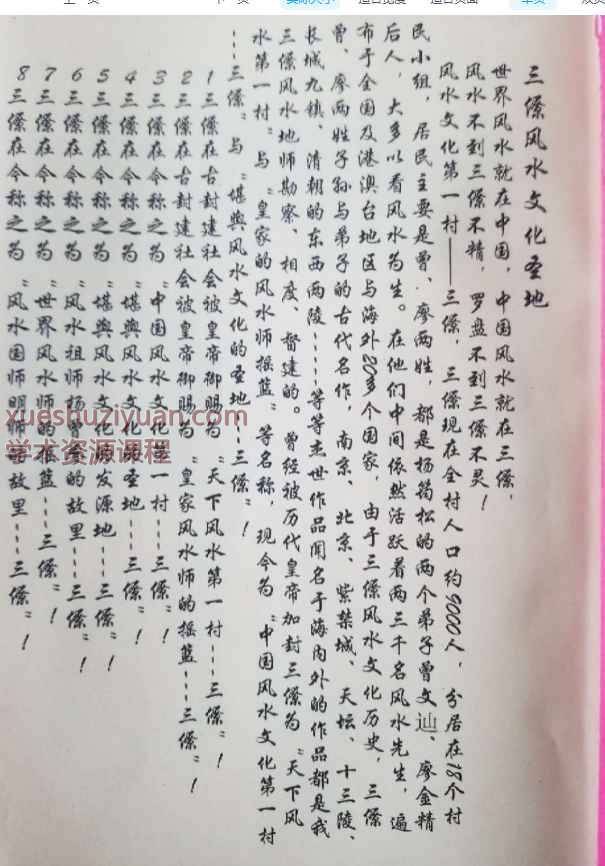 三僚风水文化圣地
世界风水就在中国，中国风水就在三僚，
风水不到三僚不精，罗盘不到三僚不灵！
风水文化第一村——三僚，三僚现在全村人口约9000人，分居在18个村
民小组，居民主要是曾、廖两姓，都是杨筠松的两个弟子曾文辿、廖金精
后人，大多以看风水为生。在他们中间依然活跃着两三千名风水先生，遍
布于全国及港澳台地区与海外20多个国家，由于三僚风水文化历史，三僚
曾、廖两姓子孙与弟子的古代名作，南京、北京、紫禁城、天坛、十三陵、
长城九镇、清朝的东西两陵……等等杰世作品闻名于海内外的作品都是我
三僚风水地师勘察、相度、督建的。曾经被历代皇帝加封三僚为“天下风
水第一村”与“皇家的风水师摇篮”等名称，现今为“中国风水文化第一村
---三僚”与“堪舆风水文化的圣地---三僚”！
1三僚在古封建社会被皇帝御赐为“天下风水第一村---三僚”！
2三僚在古封建社会被皇帝御赐为“皇家风水师的摇篮---三僚”！
3三僚在今称之为“中国风水文化第一村---三僚”！
4三僚在今称之为“堪舆风水文化的圣地---三僚”！
5三僚在今称之为“堪舆风水文化的原发源地---三僚”！
6三僚在今称之为“风水祖师杨曾廖的故里---三僚”！
7三僚在今称之为“世界风水师的摇篮---三僚”！
8三僚在今称之为“风水国师明师的故里---三僚”！
xueshuziyuan.com
学术资源课程